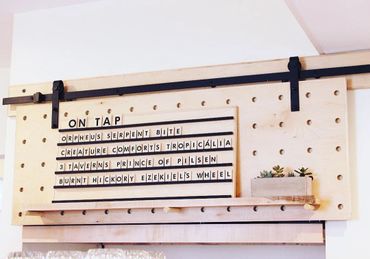 ON TAP
ORPHEUS SERPENT BITE
CREATURE COMFORTS TROPICÁLIA
3 TAVERNS PRINCE OF PILSEN
BURNT HICKORY EZEKIEL'S WHEEL